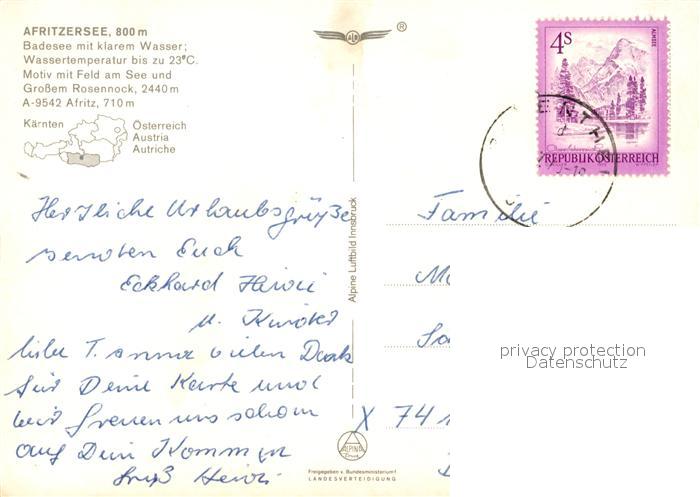 AFRITZERSEE, 800 m
Badesee mit klarem Wasser;
Wassertemperatur bis zu 23°C.
Motiv mit Feld am See und
Großem Rosennock, 2440 m
A-9542 Afritz, 710 m
Kärnten
Österreich
Austria
Autriche
Herzliche Urlaubsgrüße
senden Euch
Eckhard Heidi
u. Kinder
liebe T. anna vielen Dank
für Deine Karte und
wir freuen uns schon
auf Dein Kommen
Gruß Heidi
Alpine Luftbild Innsbruck
ALPINA
Druck
Freigegeben v. Bundesministerium f.
LANDESVERTEIDIGUNG
®
4S
ALMSEE
REPUBLIK ÖSTERREICH
Familie
X 741
privacy protection
Datenschutz